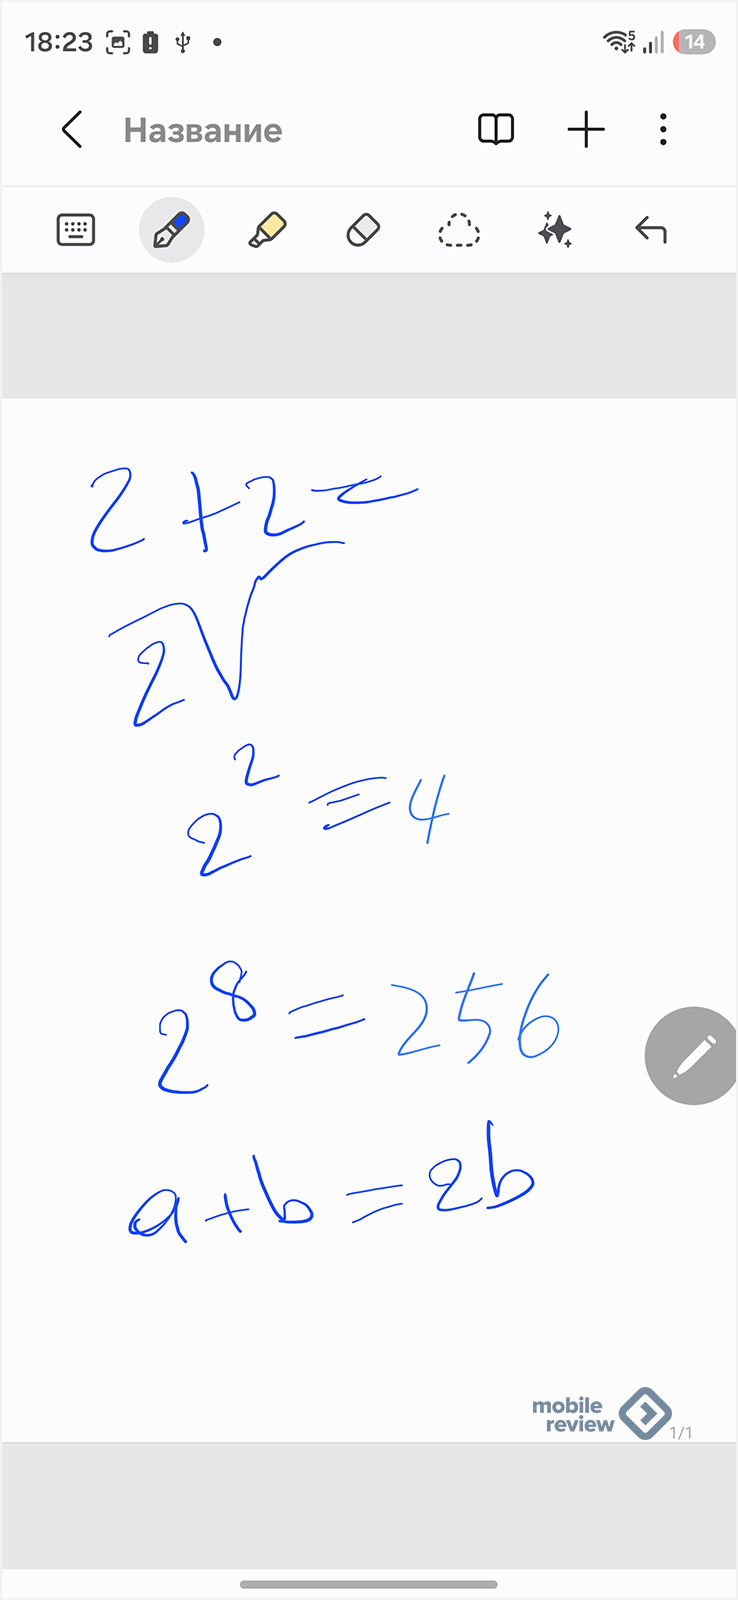 18:23 5 14
Название
2+2=
2√
2² = 4
2⁸ = 256
a+b=2b
mobile
review
1/1